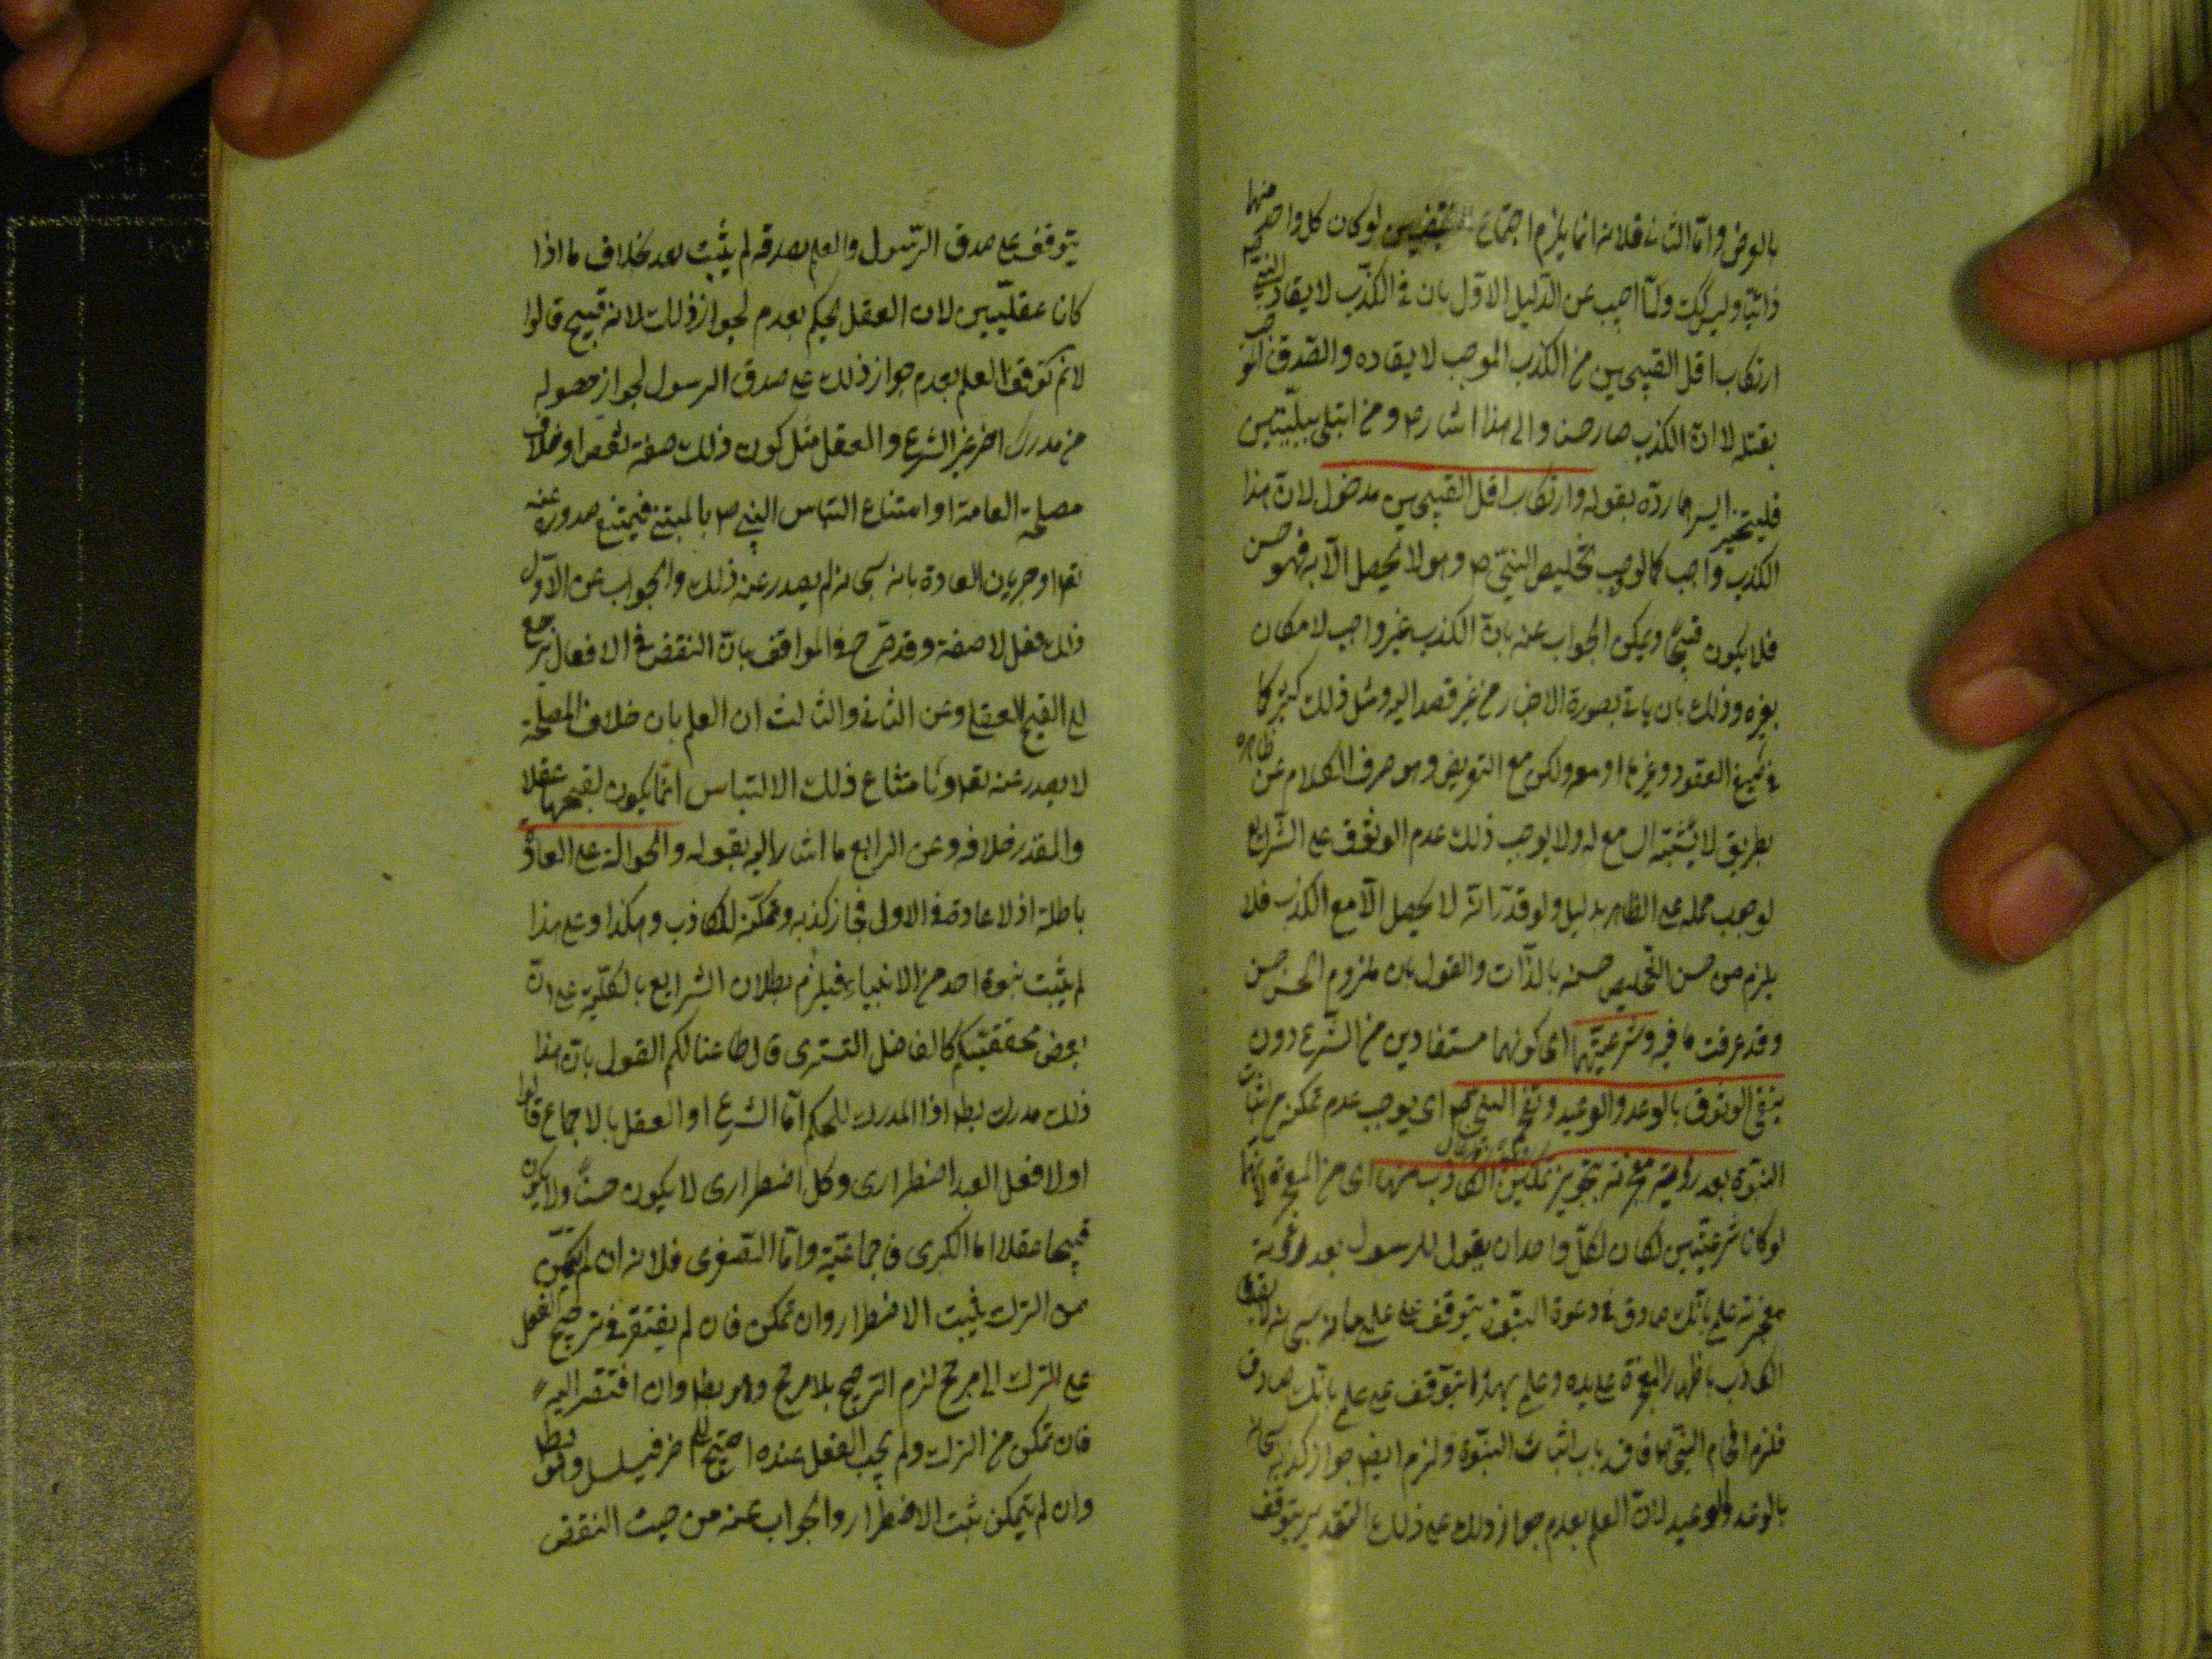 بالعرض واما الثانى فلانه انما يلزم اجتماع النقيضين لو كان كل واحد منهما
ذاتيا وليس كك ولما اجيب عن الدليل الاول بان فى الكذب لانقاذ النبى
ارتكاب اقل القبيحين من الكذب الموجب لانقاذه والصدق الموجب
بقتله لا ان الكذب صار حسن والى هذا اشار ص ومن ابتلى ببليتين
فليتخير ايسرهما رده بقوله وارتكاب اقل القبيحين مدخول لان هذا
الكذب واجب كما لوجب تخليص النبى ص وهو لا يحصل الا به فهو حسن
فلا يكون قبيحا ويمكن الجواب عنه بان الكذب غير واجب لامكان
بغيره وذلك بان ياتى بصورة الاخبار من غير قصد اليه ومثل ذلك كثير كما
فى صيغ العقود وغيرها او معه ولكن مع التعريض وهو صرف الكلام عن ظاهره
بطريق لا يشتبه السامع له ولا يوجب ذلك عدم الوثوق على الشرايع
لوجوب حمله على الظاهر بدليل ولو قدر انه لا يحصل الا مع الكذب فلا
يلزم من حسن التخليص حسنه بالذات والقول بان ملزوم الحسن حسن
وقد عرفت ما فيه وشرعيتهما اى كونهما مستفادين من الشرع دون
ينفى الوثوق بالوعد والوعيد وتفحم النبى ص اى يوجب عدم تمكنه من اثبات
النبوة بعد رؤية معجزته بتجويز تمكين الكاذب منها اى من المعجزة لانهما
لو كانا شرعيتين لكان لكل واحد ان يقول للرسول بعد رؤية
معجزته علمى بانك صادق فى دعوة النبوة يتوقف على علمى بانه سبحانه لا
الكاذب باظهار المعجزة على يده وعلمى بهذا يتوقف على علمى بانك صادق
فلزم افحام النبى ص فى باب اثبات النبوة ولزم ايضا جواز كذبه سبحانه
بالوعد والوعيد لان العلم بعدم جواز ذلك على ذلك التقدير يتوقف
يتوقف على صدق الرسول والعلم بصدقه لم يثبت بعد بخلاف ما اذا
كانا عقليين لان العقل يحكم بعدم لجواز ذلك لانه قبيح قالوا
لانم توقف العلم بعدم جواز ذلك على صدق الرسول لجواز حصوله
من مدرك اخر غير الشرع والعقل مثل كون ذلك صفة نقص او خلاف
مصلحة العامة او امتناع التباس النبى ص بالمتنبى فيمتنع صدوره عنه
تعا او جريان العادة بانه سبحانه لم يصدر عنه ذلك والجواب عن الاول
ذلك فعل لا صفة وقد صرح فى المواقف بان النقص فى الافعال يرجع
الى القبح العقلى وعن الثانى والثالث ان العلم بان خلاف المصلحة
لا يصدر عنه تعا وبامتناع ذلك الالتباس انما يكون لقبحهما عقلا
والمقدر خلافه وعن الرابع ما اشار اليه بقوله والحوالة على العادة
باطلة اذ لا عادة فى الاول فجاز كذبه وتمكنه للكاذب وهكذا وعلى هذا
لم يثبت نبوة احد من الانبياء فيلزم بطلان الشرايع بالكلية على ان
بعض محققيكم كالفاضل التسترى قال طاعنا لكم القول بان هذا
ذلك مدرك بط اذ المدرك للحكم اما الشرع او العقل بالاجماع قالوا
اولا فعل العبد اضطرارى وكل اضطرارى لا يكون حسنا ولا يكون
قبيحا عقلا اما الكبرى فاجماعية واما الصغرى فلانه ان لم يتمكن
من الترك يثبت الاضطرار وان تمكن فان لم يفتقر فى ترجيح الفعل
على الترك الى مرجح لزم الترجيح بلا مرجح وهو بط وان افتقر اليه
فان تمكن من الترك ولم يجب الفعل عنده احتيج الى اخر فيتسلسل وهو بط
وان لم يتمكن ثبت الاضطرار والجواب عنه من حيث النقض